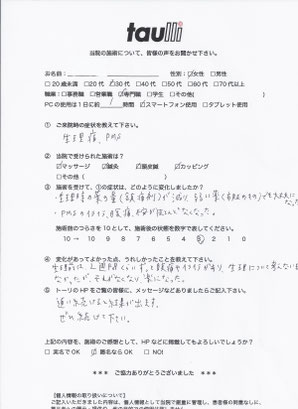 taulli
当院の施術について、皆様の声をお聞かせ下さい。
お名前: 性別: ☑女性 □男性
□20歳未満 □20代 ☑30代 □40代 □50代 □60代 □70代以上
職業: □事務職 □営業職 ☑専門職 □学生 □その他( )
PCの使用は1日に約 時間 ☑スマートフォン使用 □タブレット使用
① ご来院時の症状を教えて下さい。
生理痛、PMS
② 当院で受けられた施術は?
☑マッサージ ☑鍼灸 ☑頭皮鍼 ☑カッピング
□その他( )
③ 施術を受けて、①の症状は、どのように変化しましたか?
・生理時の薬の量(鎮痛剤)が減り、弱い薬(市販のもの)でも大丈夫に
なった。
・PMSのイライラ、腹痛、がほとんどなくなった。
施術前のつらさを10として、施術後の状態を数字で表してください。
10 → 10 9 8 7 6 5 4 3 2 1 0
④ 変化があってよかった点、うれしかったことを教えて下さい。
生理前は1週間くらいずっと腹痛やイライラがあり、生理について考えない日が
なかったが、それがなくなり、楽になった。
⑤ トーリのHPをご覧の皆様に、メッセージなどありましたらご記入下さい。
通い続けると結果が出ます。
ぜひ続けて下さい。
上記の内容を、施術のご感想として、HPなどに掲載してもよろしいでしょうか?
□実名でOK ☑匿名ならOK □NO!
*** ご協力ありがとうございました ***
【個人情報の取り扱いについて】
ご記入いただきました内容は、個人情報として当院で厳重に管理し、患者様の同意なしに、